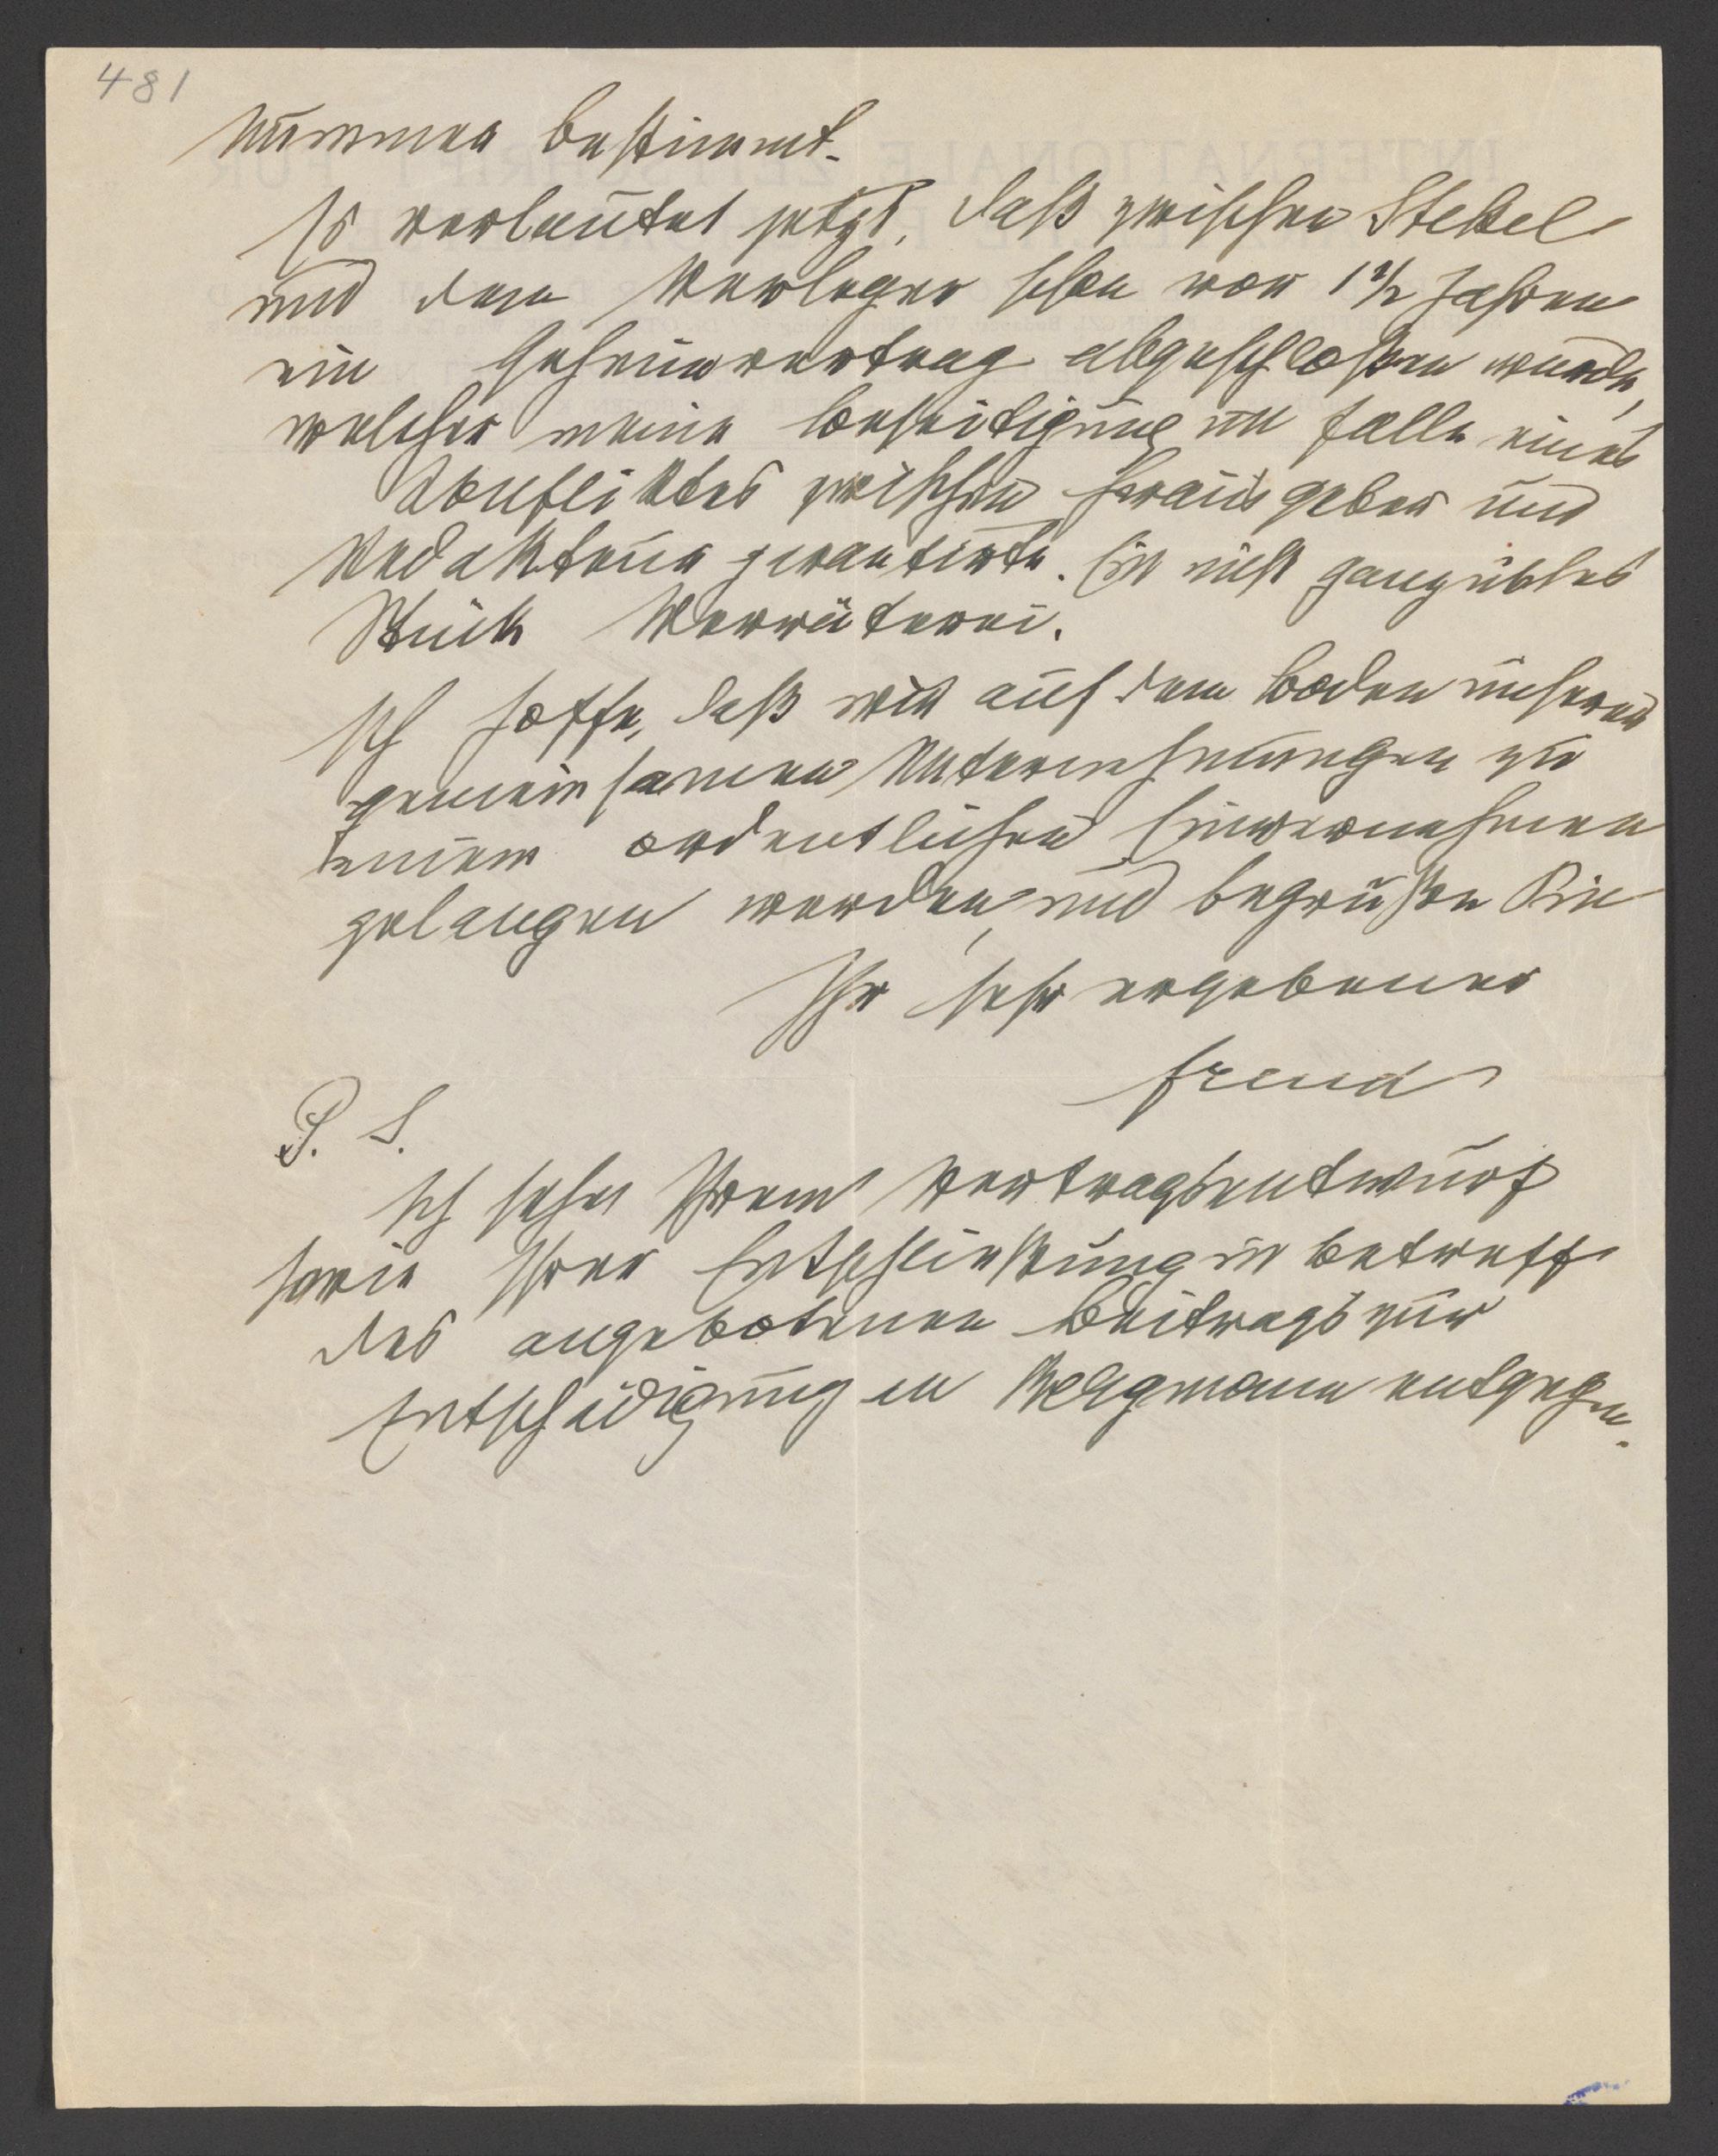 481
Nummer bestimmt.
Es verlautet jetzt, daß zwischen Stekel
und dem Verleger schon vor 1 1/2 Jahren
ein Geheimvertrag abgeschlossen wurde,
welcher meine Beseitigung im Falle eines
Konfliktes zwischen Herausgeber und
Redakteur garantirte. Ein nicht ganz übles
Stück Verräterei.
Ich hoffe, daß wir auf dem Boden unserer
gemeinsamen Unternehmungen zu
einem ordentlichen Einvernehmen
gelangen werden, und begrüße Sie
Ihr sehr ergebener
Freud
P. S.
Ich sehe Ihrem Vertragsentwurf
sowie Ihrer Entschließung in betreff
des angebotenen Beitrags zur
Entschädigung an Bergmann entgegen.